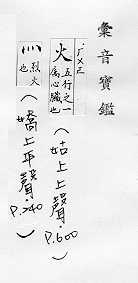 彙音寶鑑
ㄏㄨㄛˇ
火 五行之一也 為心臟
(姑上上聲) P.600
灬 烈火也
(嬌上平聲) P.240